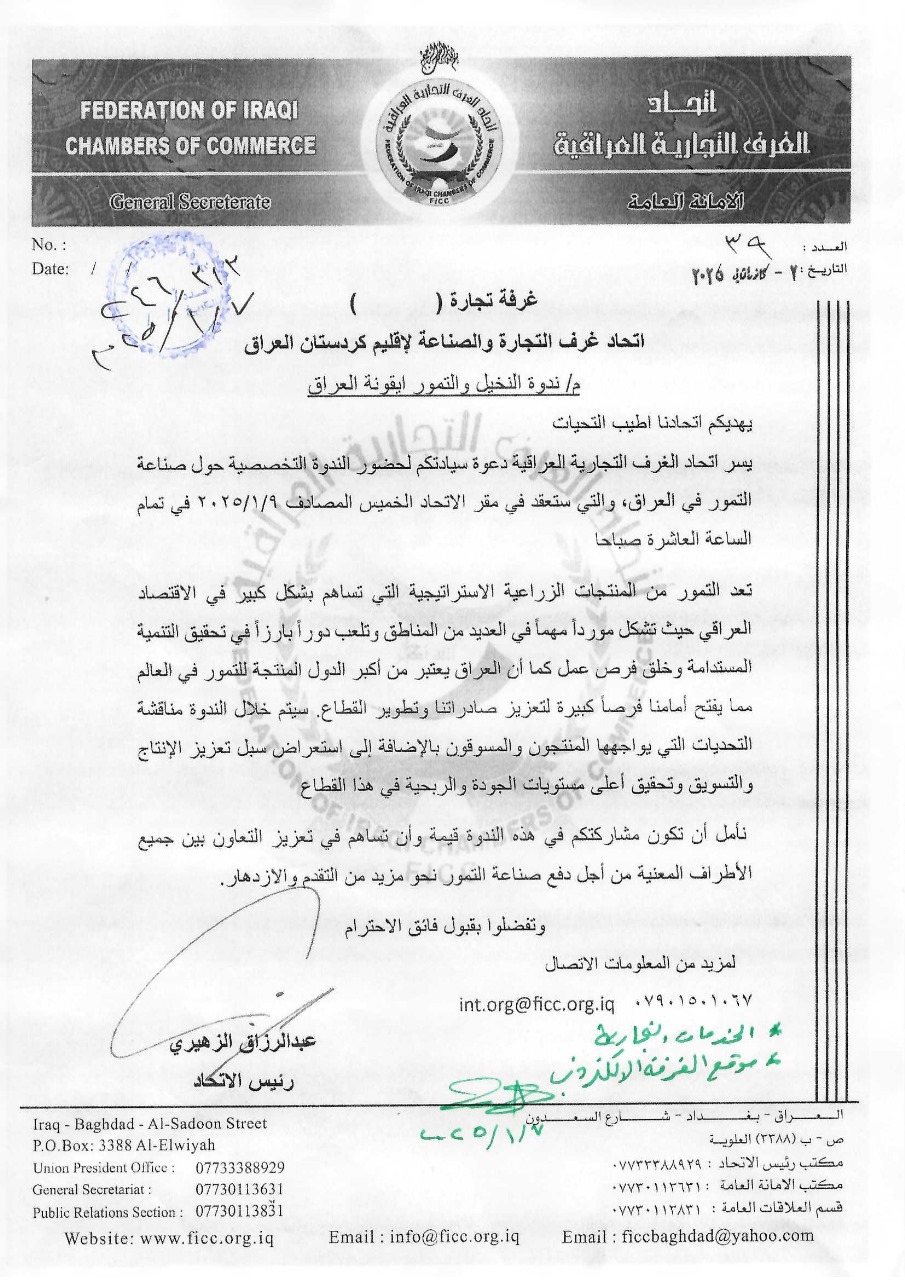 FEDERATION OF IRAQI
CHAMBERS OF COMMERCE
General Secreterate
اتحاد الغرف التجارية العراقية
FEDERATION OF IRAQI CHAMBERS OF COMMERCE
FICC
اتحاد
الغرف التجارية العراقية
الامانة العامة
No. :
Date: / /
العدد : ٣٩
التاريخ : ٧ - كانون الثاني ٢٠٢٥
غرفة تجارة ( )
اتحاد غرف التجارة والصناعة لإقليم كردستان العراق
م/ ندوة النخيل والتمور ايقونة العراق
يهديكم اتحادنا اطيب التحيات
يسر اتحاد الغرف التجارية العراقية دعوة سيادتكم لحضور الندوة التخصصية حول صناعة
التمور في العراق، والتي ستعقد في مقر الاتحاد الخميس المصادف ٢٠٢٥/١/٩ في تمام
الساعة العاشرة صباحا
تعد التمور من المنتجات الزراعية الاستراتيجية التي تساهم بشكل كبير في الاقتصاد
العراقي حيث تشكل مورداً مهماً في العديد من المناطق وتلعب دوراً بارزاً في تحقيق التنمية
المستدامة وخلق فرص عمل كما أن العراق يعتبر من أكبر الدول المنتجة للتمور في العالم
مما يفتح أمامنا فرصاً كبيرة لتعزيز صادراتنا وتطوير القطاع. سيتم خلال الندوة مناقشة
التحديات التي يواجهها المنتجون والمسوقون بالإضافة إلى استعراض سبل تعزيز الإنتاج
والتسويق وتحقيق أعلى مستويات الجودة والربحية في هذا القطاع
نأمل أن تكون مشاركتكم في هذه الندوة قيمة وأن تساهم في تعزيز التعاون بين جميع
الأطراف المعنية من أجل دفع صناعة التمور نحو مزيد من التقدم والازدهار.
وتفضلوا بقبول فائق الاحترام
لمزيد من المعلومات الاتصال
int.org@ficc.org.iq ٠٧٩٠١٥٠١٠٦٧
* الخدمات التجارية
* موقع الغرفة الالكتروني
عبدالرزاق الزهيري
رئيس الاتحاد
Iraq - Baghdad - Al-Sadoon Street
P.O.Box: 3388 Al-Elwiyah
Union President Office : 07733388929
General Secretariat : 07730113631
Public Relations Section : 07730113831
العـراق - بغـداد - شـارع السعـدون
ص - ب (٣٣٨٨) العلوية
مكتب رئيس الاتحاد : ٠٧٧٣٣٣٨٨٩٢٩
مكتب الامانة العامة : ٠٧٧٣٠١١٣٦٣١
قسم العلاقات العامة : ٠٧٧٣٠١١٣٨٣١
Website: www.ficc.org.iq Email : info@ficc.org.iq Email : ficcbaghdad@yahoo.com